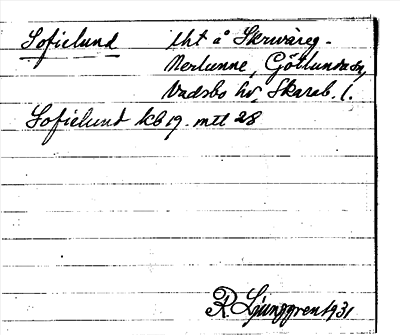 Sofielund tht å Skrwäreg.
Nerlunne, Götlunda sn,
Vadsbo hd, Skarab. l.
Sofielund kb 19. mtl 28
R. Ljunggren 1931